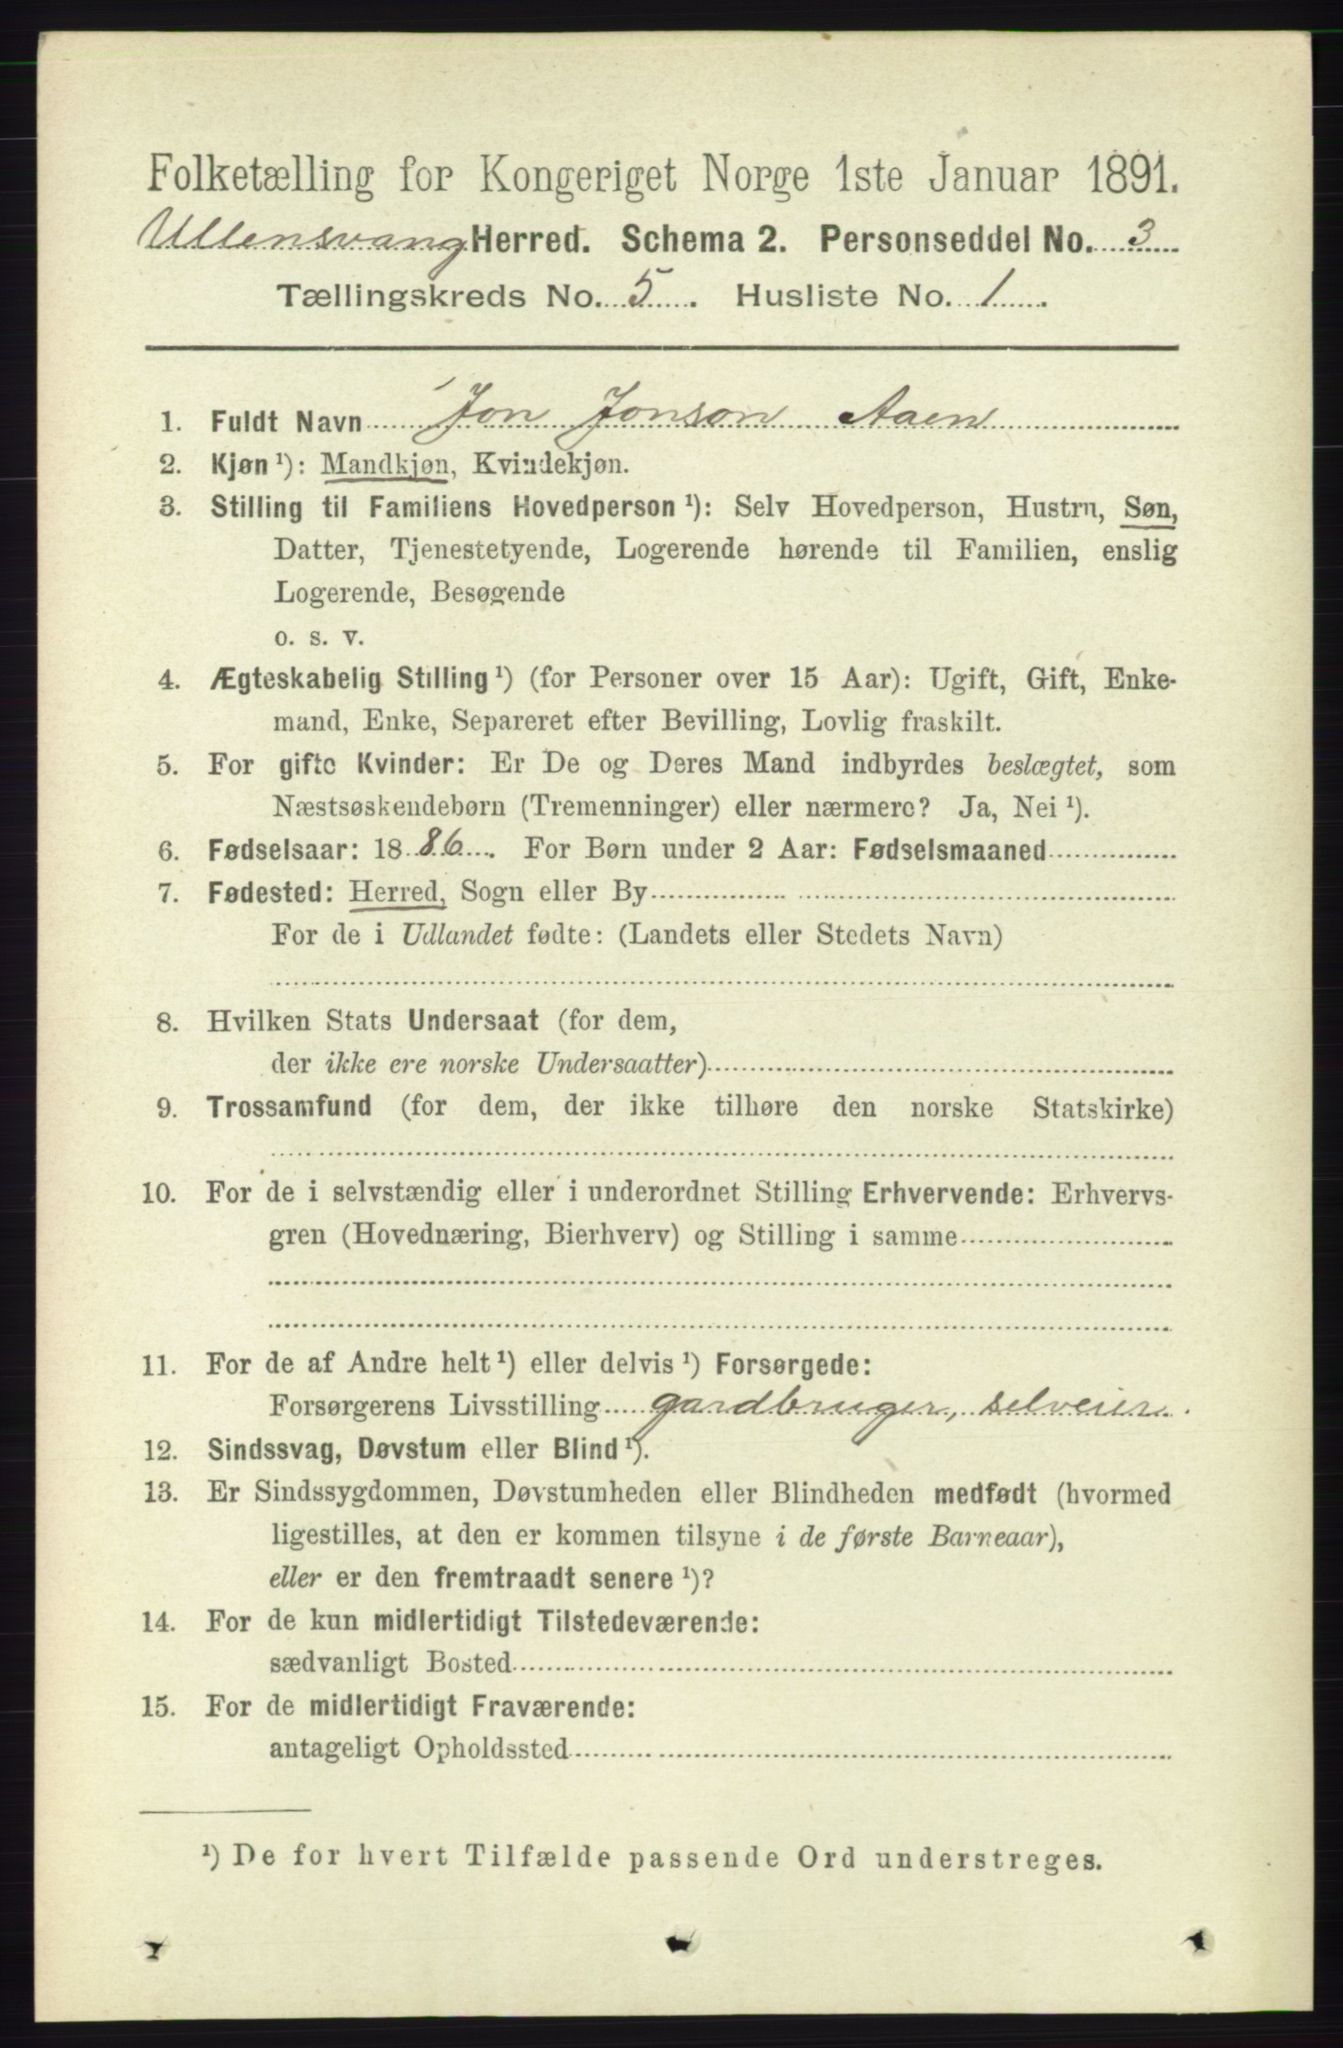 Folketælling for Kongeriget Norge 1ste Januar 1891.
Ullensvang Herred. Schema 2. Personseddel No. 3
Tællingskreds No. 5. Husliste No. 1.
1. Fuldt Navn Jon Jonson Aaen
2. Kjøn ¹): Mandkjøn, Kvindekjøn.
3. Stilling til Familiens Hovedperson ¹): Selv Hovedperson, Hustru, Søn,
Datter, Tjenestetyende, Logerende hørende til Familien, enslig
Logerende, Besøgende
o. s. v.
4. Ægteskabelig Stilling ¹) (for Personer over 15 Aar): Ugift, Gift, Enke-
mand, Enke, Separeret efter Bevilling, Lovlig fraskilt.
5. For gifte Kvinder: Er De og Deres Mand indbyrdes beslægtet, som
Næstsøskendebørn (Tremenninger) eller nærmere? Ja, Nei ¹).
6. Fødselsaar: 1886. For Børn under 2 Aar: Fødselsmaaned
7. Fødested: Herred, Sogn eller By
For de i Udlandet fødte: (Landets eller Stedets Navn)
8. Hvilken Stats Undersaat (for dem,
der ikke ere norske Undersaatter)
9. Trossamfund (for dem, der ikke tilhøre den norske Statskirke)
10. For de i selvstændig eller i underordnet Stilling Erhvervende: Erhvervs-
gren (Hovednæring, Bierhverv) og Stilling i samme
11. For de af Andre helt ¹) eller delvis ¹) Forsørgede:
Forsørgerens Livsstilling gardbruger, selveier.
12. Sindssvag, Døvstum eller Blind ¹).
13. Er Sindssygdommen, Døvstumheden eller Blindheden medfødt (hvormed
ligestilles, at den er kommen tilsyne i de første Barneaar),
eller er den fremtraadt senere ¹)?
14. For de kun midlertidigt Tilstedeværende:
sædvanligt Bosted
15. For de midlertidigt Fraværende:
antageligt Opholdssted
¹) De for hvert Tilfælde passende Ord understreges.